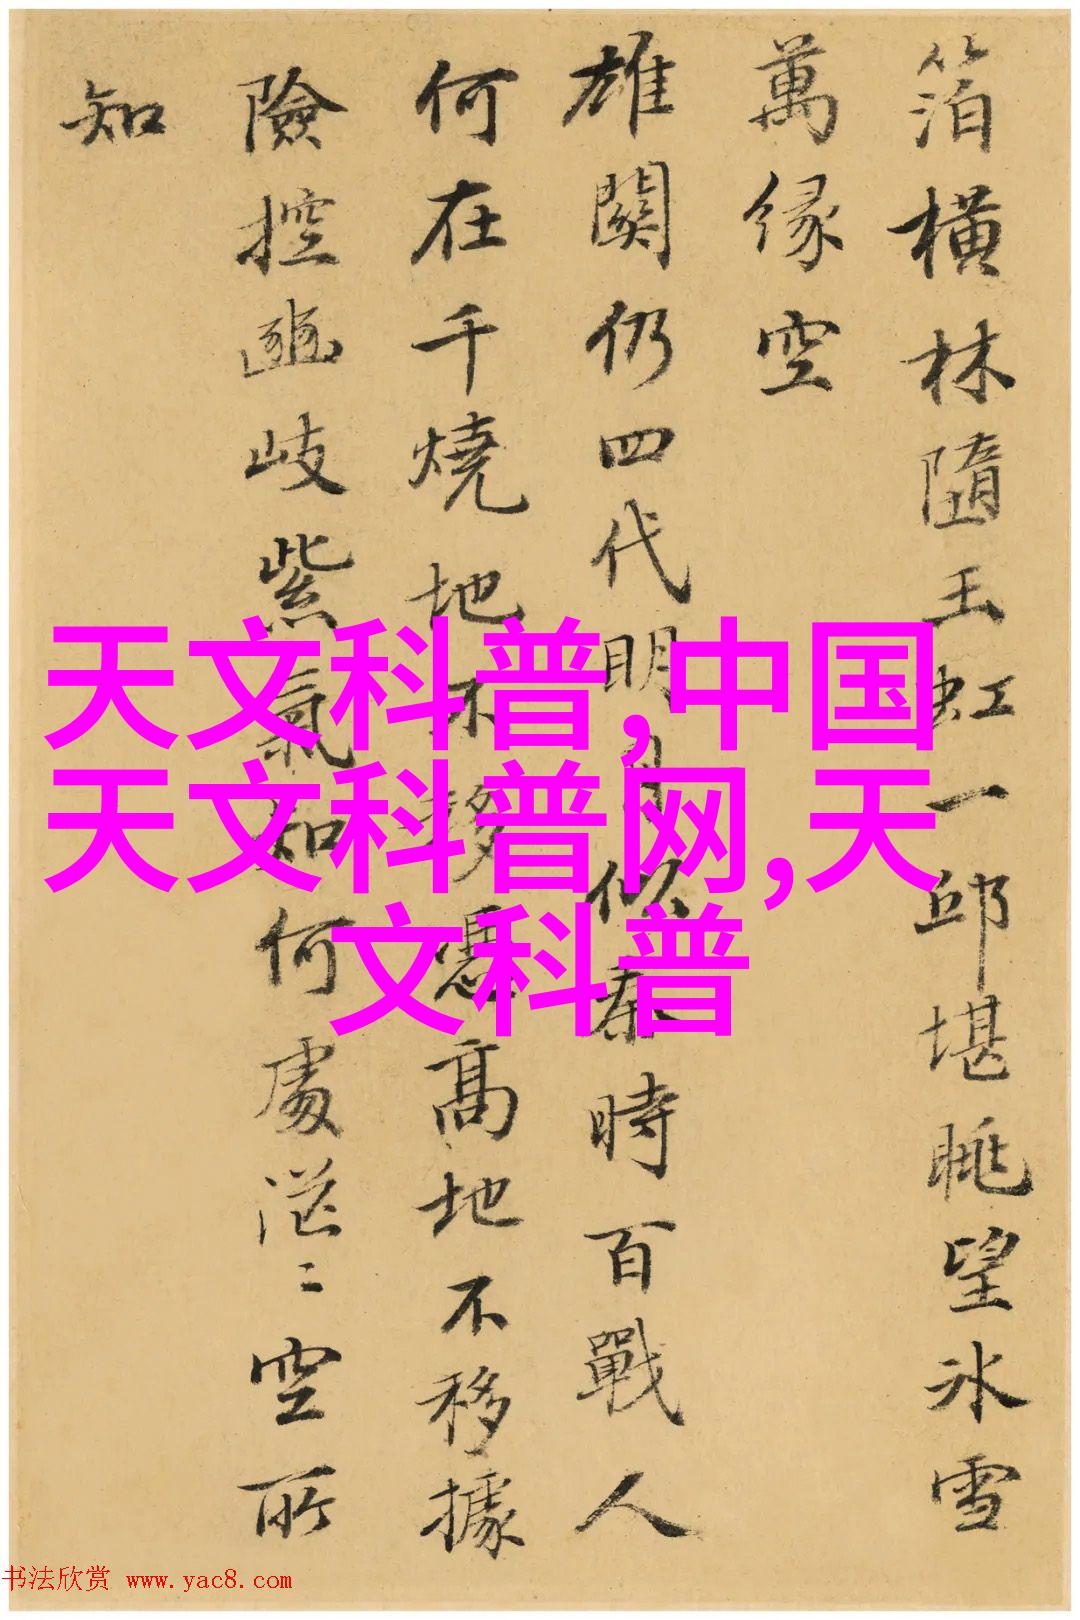 箔橫林隨玉虹一邱堪眺望冰雪
萬緣空
雄關仍四代明月似秦時百戰人
何在千燒地不移憑高地不移據
險控豳岐紫氣知何處茫〻空所
知
天文科普,中国
天文科普网,天
文科普
书法欣赏 www.yac8.com